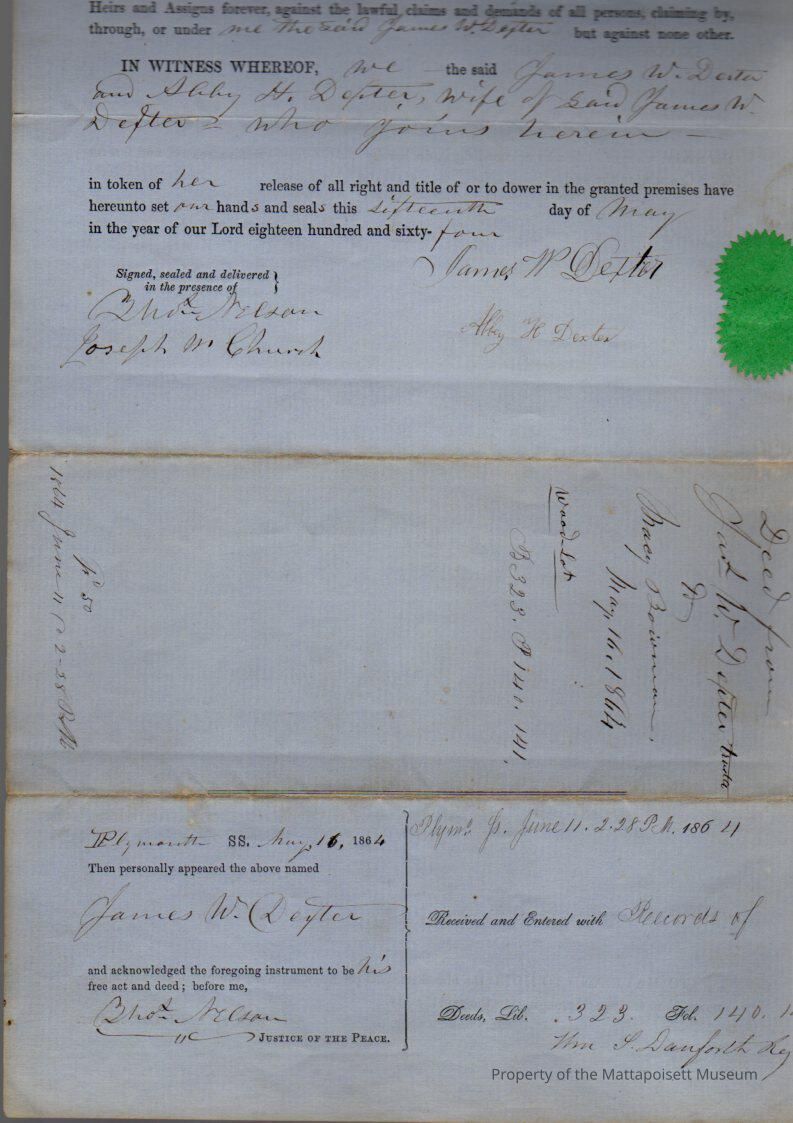 Heirs and Assigns forever, against the lawful claims and demands of all persons, claiming by,
through, or under me the said James W. Dexter but against none other.
IN WITNESS WHEREOF, we the said James W. Dexter
and Abby H. Dexter, wife of said James W.
Dexter - who joins herein -
in token of her release of all right and title of or to dower in the granted premises have
hereunto set our hands and seals this sixteenth day of May
in the year of our Lord eighteen hundred and sixty-four
Signed, sealed and delivered
in the presence of
James W Dexter
Thos. Nelson
Abby H Dexter
Joseph M Church
Deed from
Jas W. Dexter
to
Bowman,
May, 16, 1864
Wood Lot
B 323. P 140. 141,
50
1864 June 11 2-28 P.M.
Plymouth SS. May, 16, 1864
Then personally appeared the above named
James W. Dexter
and acknowledged the foregoing instrument to be his
free act and deed; before me,
Thos. Nelson
JUSTICE OF THE PEACE.
Plym. June 11. 2.28 P.M. 1864
Received and Entered with Records of
Deeds, Lib. 323. Fol. 140.
Wm S. Danforth Reg
Property of the Mattapoisett Museum